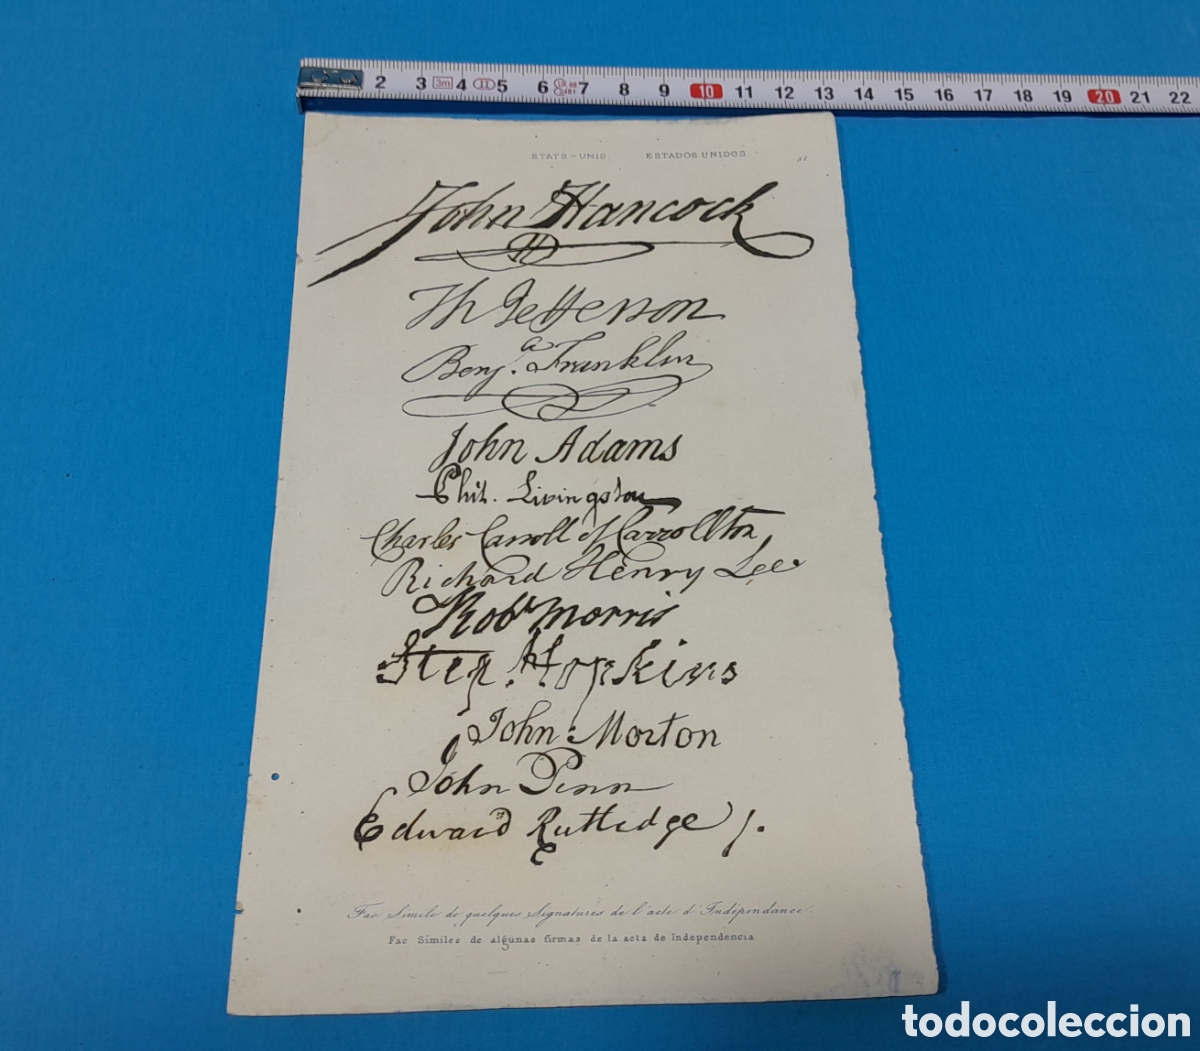 2 3 3m 4 II 5 6 7 8 9 10 11 12 13 14 15 16 17 18 19 20 21 22
ETATS-UNIS. ESTADOS UNIDOS
John Hancock
Th Jefferson
Benj.a Franklin
John Adams
Phil. Livingston
Charles Carroll of Carrollton
Richard Henry Lee
Robt Morris
Step. Hopkins
John Morton
John Penn
Edward Rutledge /.
Fac Simile de quelques Signatures de l'acte d'Indépendance.
Fac Similes de algunas firmas de la acta de Independencia
todocoleccion